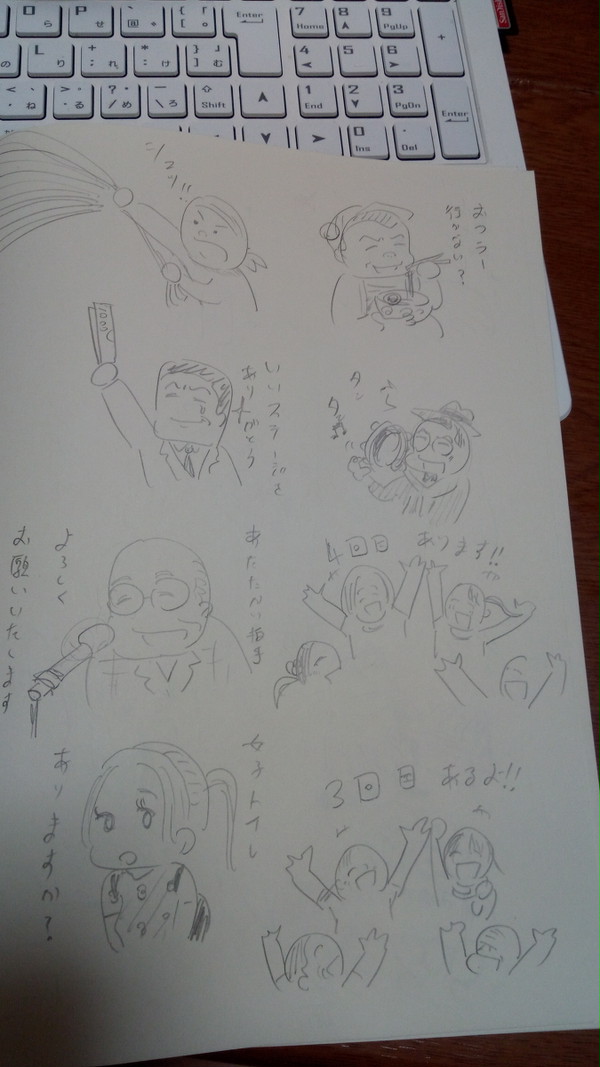 O ら
P せ
Enter
7 Home
8
9 PgUp
+
L り
4
5
6
Shift
1 End
2
3 PgDn
Enter
0 Ins
. Del
シュッ!!
いいステージを
ありがとう
タン
4回目 あります!!
あたたかい拍手
よろしく
お願いいたします
3回目 あるよ!!
女子トイレ
ありますか?